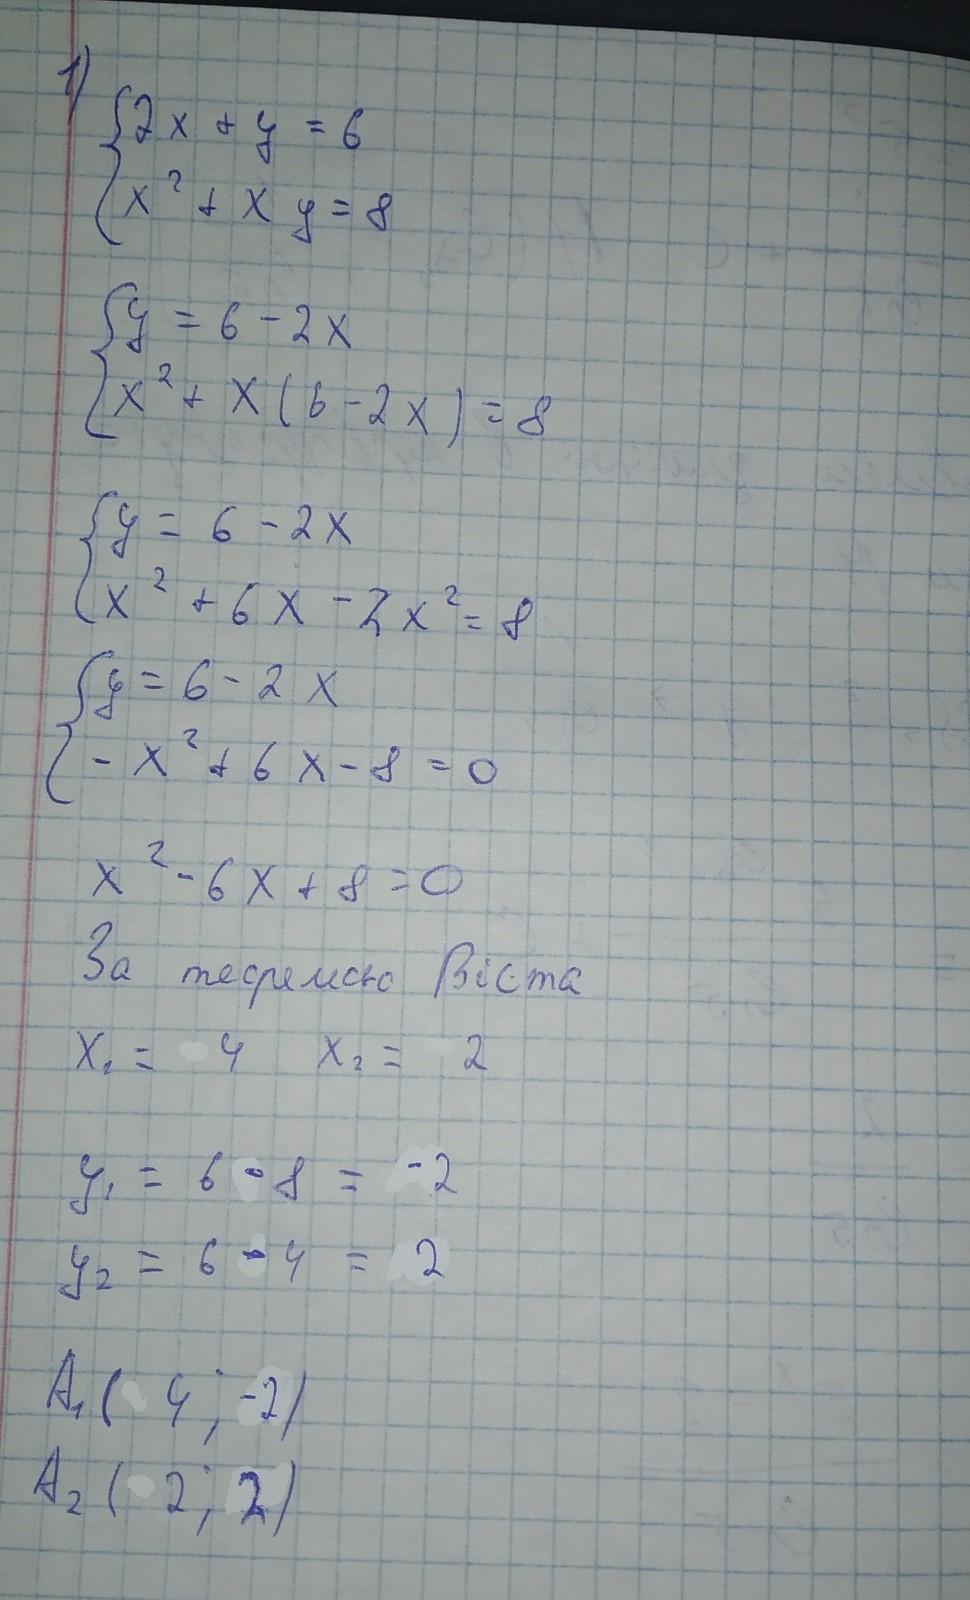 1)
2x + y = 6
x² + xy = 8
y = 6 - 2x
x² + x(6 - 2x) = 8
y = 6 - 2x
x² + 6x - 2x² = 8
y = 6 - 2x
- x² + 6x - 8 = 0
x² - 6x + 8 = 0
За теоремою Вієта
x₁ = 4 x₂ = 2
y₁ = 6 - 8 = -2
y₂ = 6 - 4 = 2
A₁( 4 ; -2)
A₂( 2 ; 2)